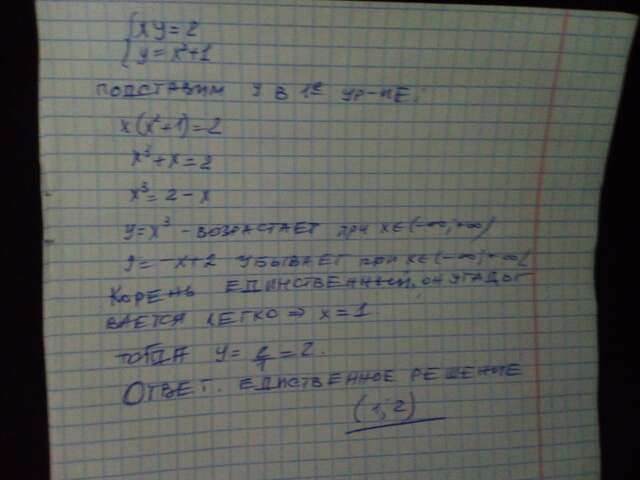 {xy=2
{y=x²+1
ПОДСТАВИМ У В 1е УР-НИЕ.
x(x²+1)=2
x³+x=2
x³=2-x
y=x³-ВОЗРАСТАЕТ ПРИ XЄ(-∞;+∞)
y=-x+2 УБЫВАЕТ ПРИ XЄ(-∞;+∞)
КОРЕНЬ ЕДИНСТВЕННЫЙ, ОН УГАДЫ
ВАЕТСЯ ЛЕГКО ⇒ x=1
ТОГДА y=2/1=2.
ОТВЕТ. ЕДИСТВЕННОЕ РЕШЕНИЕ
(1;2)